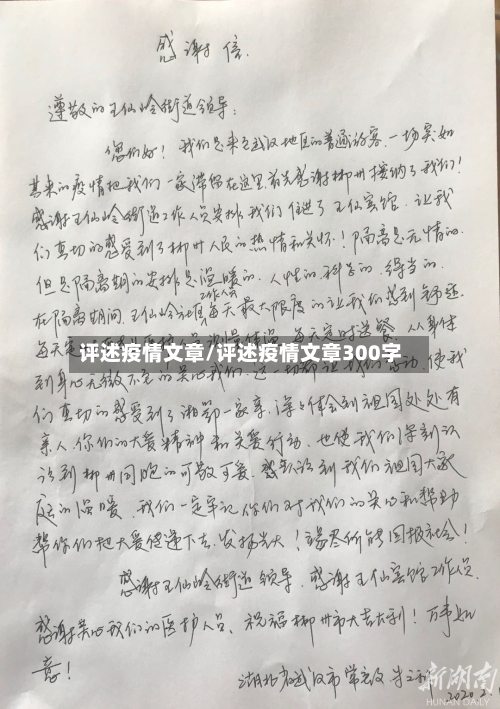 感谢信.
尊敬的王仙岭街道领导:
您们好! 我们是来自武汉地区的普通游客,一场突如
其来的疫情把我们一家滞留在这里.首先感谢郴州接纳了我们!
感谢王仙岭街道工作人员安排我们住进了王仙宾馆.让我
们真切的感受到了郴州人民的热情和关怀!隔离是无情的.
但是隔离期的安排是温暖的.人性的.科学的.得当的.
工作人员
在隔离期间.王仙岭社区每天最大限度的让我们
每天定时送餐 从身体
评述疫情文章/评述疫情文章300字
到身心无微不至的关心我们.这一切都让我们感动.使我
们真切的感受到了湘鄂一家亲.深深体会到祖国处处有
亲人.你们的大爱精神和关爱行动.也使我们深刻认
识到郴州同胞的可敬可爱.我们祖国大家
庭的温暖.我们一定牢记你们对我们的关心和帮助
帮你们把大爱传递下去.发扬光大!竭尽所能回报社会!
感谢王仙岭街道领导.感谢王仙宾馆工作人员.
感谢关心我们的医护人员.祝福郴州市大吉大利!万事如
意!
湖北省武汉市
新湖南
HUNAN DAILY
2020.2.